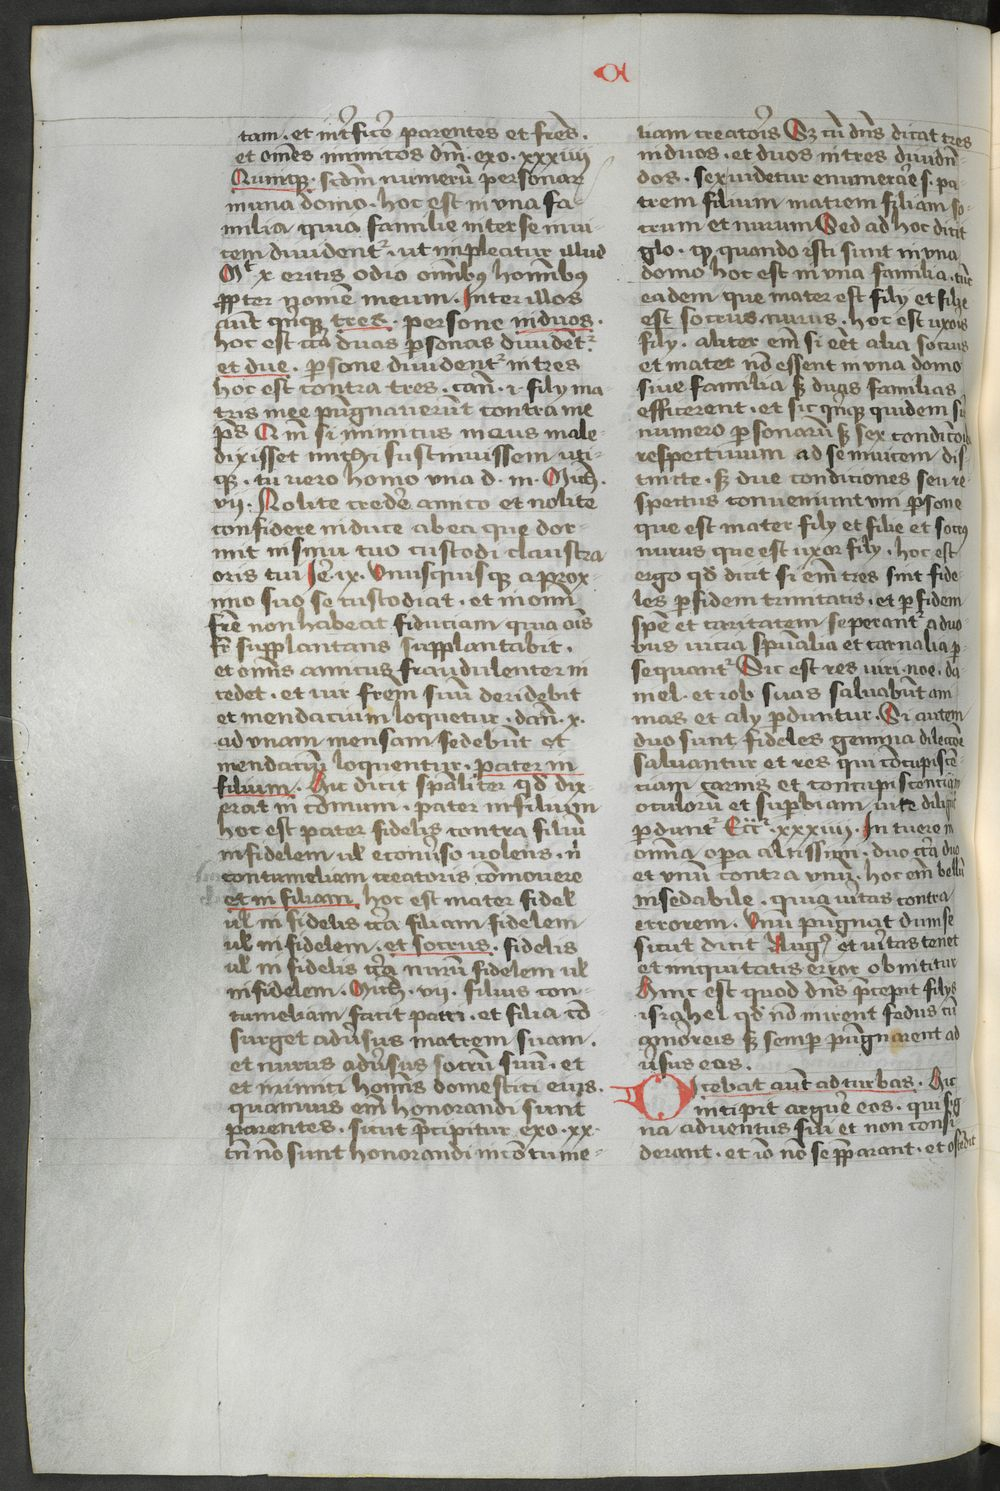 a
tam · et int̄fic̄e parentes et fr̄es ·
et om̄es inimicos dn̄i · exo · xxxiiii
Quinqꝫ · scd̄m numerū personar
in una domo · hoc est in vna fa-
milia quia familie inter se inui-
cem diuidentᷣ · ut impleatur illud
Mᵗ x eritis odio om̄ibꝯ hom̄ibꝯ
ꝓpter nomē meum · Inter illos
aūt qn̄qꝫ tres · persone in duos ·
hoc est cͣ duas ꝑsonas diuidentᷣ
et due · ꝑsone diuidentᷣ in tres
hoc est contra tres · can̄ · i · filij ma
tris mee pūgnauerūt contra me
p̄s Qm̄ si inimicus meus male-
dixisset mihi sustinuissem uti-
qꝫ · tu uero homo vna d · m · Mich ·
vii · Nolite credēe amico et nolite
confidere in duce ab ea que dor-
mit in sinu tuo custodi claustra
oris tui Ie · ix · Vnusquisqꝫ a prox-
imo suo se custodiat · et in om̄i
fr̄e non habeat fiduciam quia oīs
fr̄ supplantans supplantabit ·
et om̄is amicus fraudulenter in
cedet · et uir frēm suū deridebit
et mendacium loquetur · dan̄ · x ·
ad vnam mensam sedebūt et
mendaciū loquentur · pater in
filium · Hic dicit spāliter qd̄ dix-
erat in cōmuni · pater in filium
hoc est pater fidelis contra filiū
infidelem ul̄ econūso uolens · n̄
contumeliam creatoris cōmouere
et in filiam hoc est mater fidel̄
ul̄ infidelis cͣ filiam fidelem
ul̄ infidelem · et socrus · fidelis
ul̄ infidelis cͣ nurū fidelem ul̄
infidelem · Mich · vii · filius con-
tumeliam facit patri · et filia cō
surget adūsus matrem suam ·
et nurus adūsus socrū suū · et
et inimici hom̄is domestici eius ·
quamuis em̄ honorandi sunt
parentes · sicut p̄cipitur exo · xx ·
tn̄ nō sunt honorandi in cōtume-
liam creatōis Sꝫ cū dn̄s dicat tres
in duos · et duos in tres diuidn̄-
dos · sex uidetur enumerāe s · pa-
trem filium matrem filiam so-
crum et nurum Sed ad hoc dicit
glo · qꝫ quando isti sunt in vna
domo hoc est in vna familia · tūc
eadem que mater est filij et filie
est socrus nurus · hoc est uxōis
filij · aliter em̄ si eēt alia socrus
et mater nō essent in vna domo
siue familia sꝫ duas familias
efficerent · et sic qn̄qꝫ quidem sūt
numero ꝑsonarū sꝫ sex condicōes
respectiuum ad se inuicem dis-
tincte · sꝫ due condiciones seu re-
spectus conueniunt vni ꝑsone
que est mater filij et filie et socrꝯ
nurus que est uxor filij · hoc est
ergo qd̄ dicit si em̄ tres sint fide
les ꝑ fidem trinitatis · et ꝑ fidem
spē et caritatem seperantᷣ a duo
bus uicia spūalia et carnalia ꝑ-
sequantᷣ Sic est res uiri · noe · da
niel · et iob suas saluabūt ani
mas et alij ꝑduntur · Si autem
duo sunt fideles gemina dilectōe
saluantur et res qui cōcupiscē-
ciam carnis et concupiscenciam
oculorū et suꝑbiam uite diligūt
ꝑduntᷣ Eccᷓ · xxxiiii · Intuere in
omīa opera altissimi · duo cͣ duo
et vnū contra vnū · hoc em̄ bellū
insedabile · quia ūitas contra
errorem · Vnū pūgnat dum se
sicut dicit Augꝯ et ūitas tenet
et iniquitatis error obnititur
Hinc est quod dn̄s p̄cepit filijs
israhel qd̄ nō inirent fedus cū
amoreis sꝫ semꝑ pūgnarent ad
ūsus eos ·
Dicebat aūt ad turbas · Hic
incipit arguēe eos · qui sig-
na aduentus sui et non consi
derant · et iō nō se p̄parant · et ostēdit